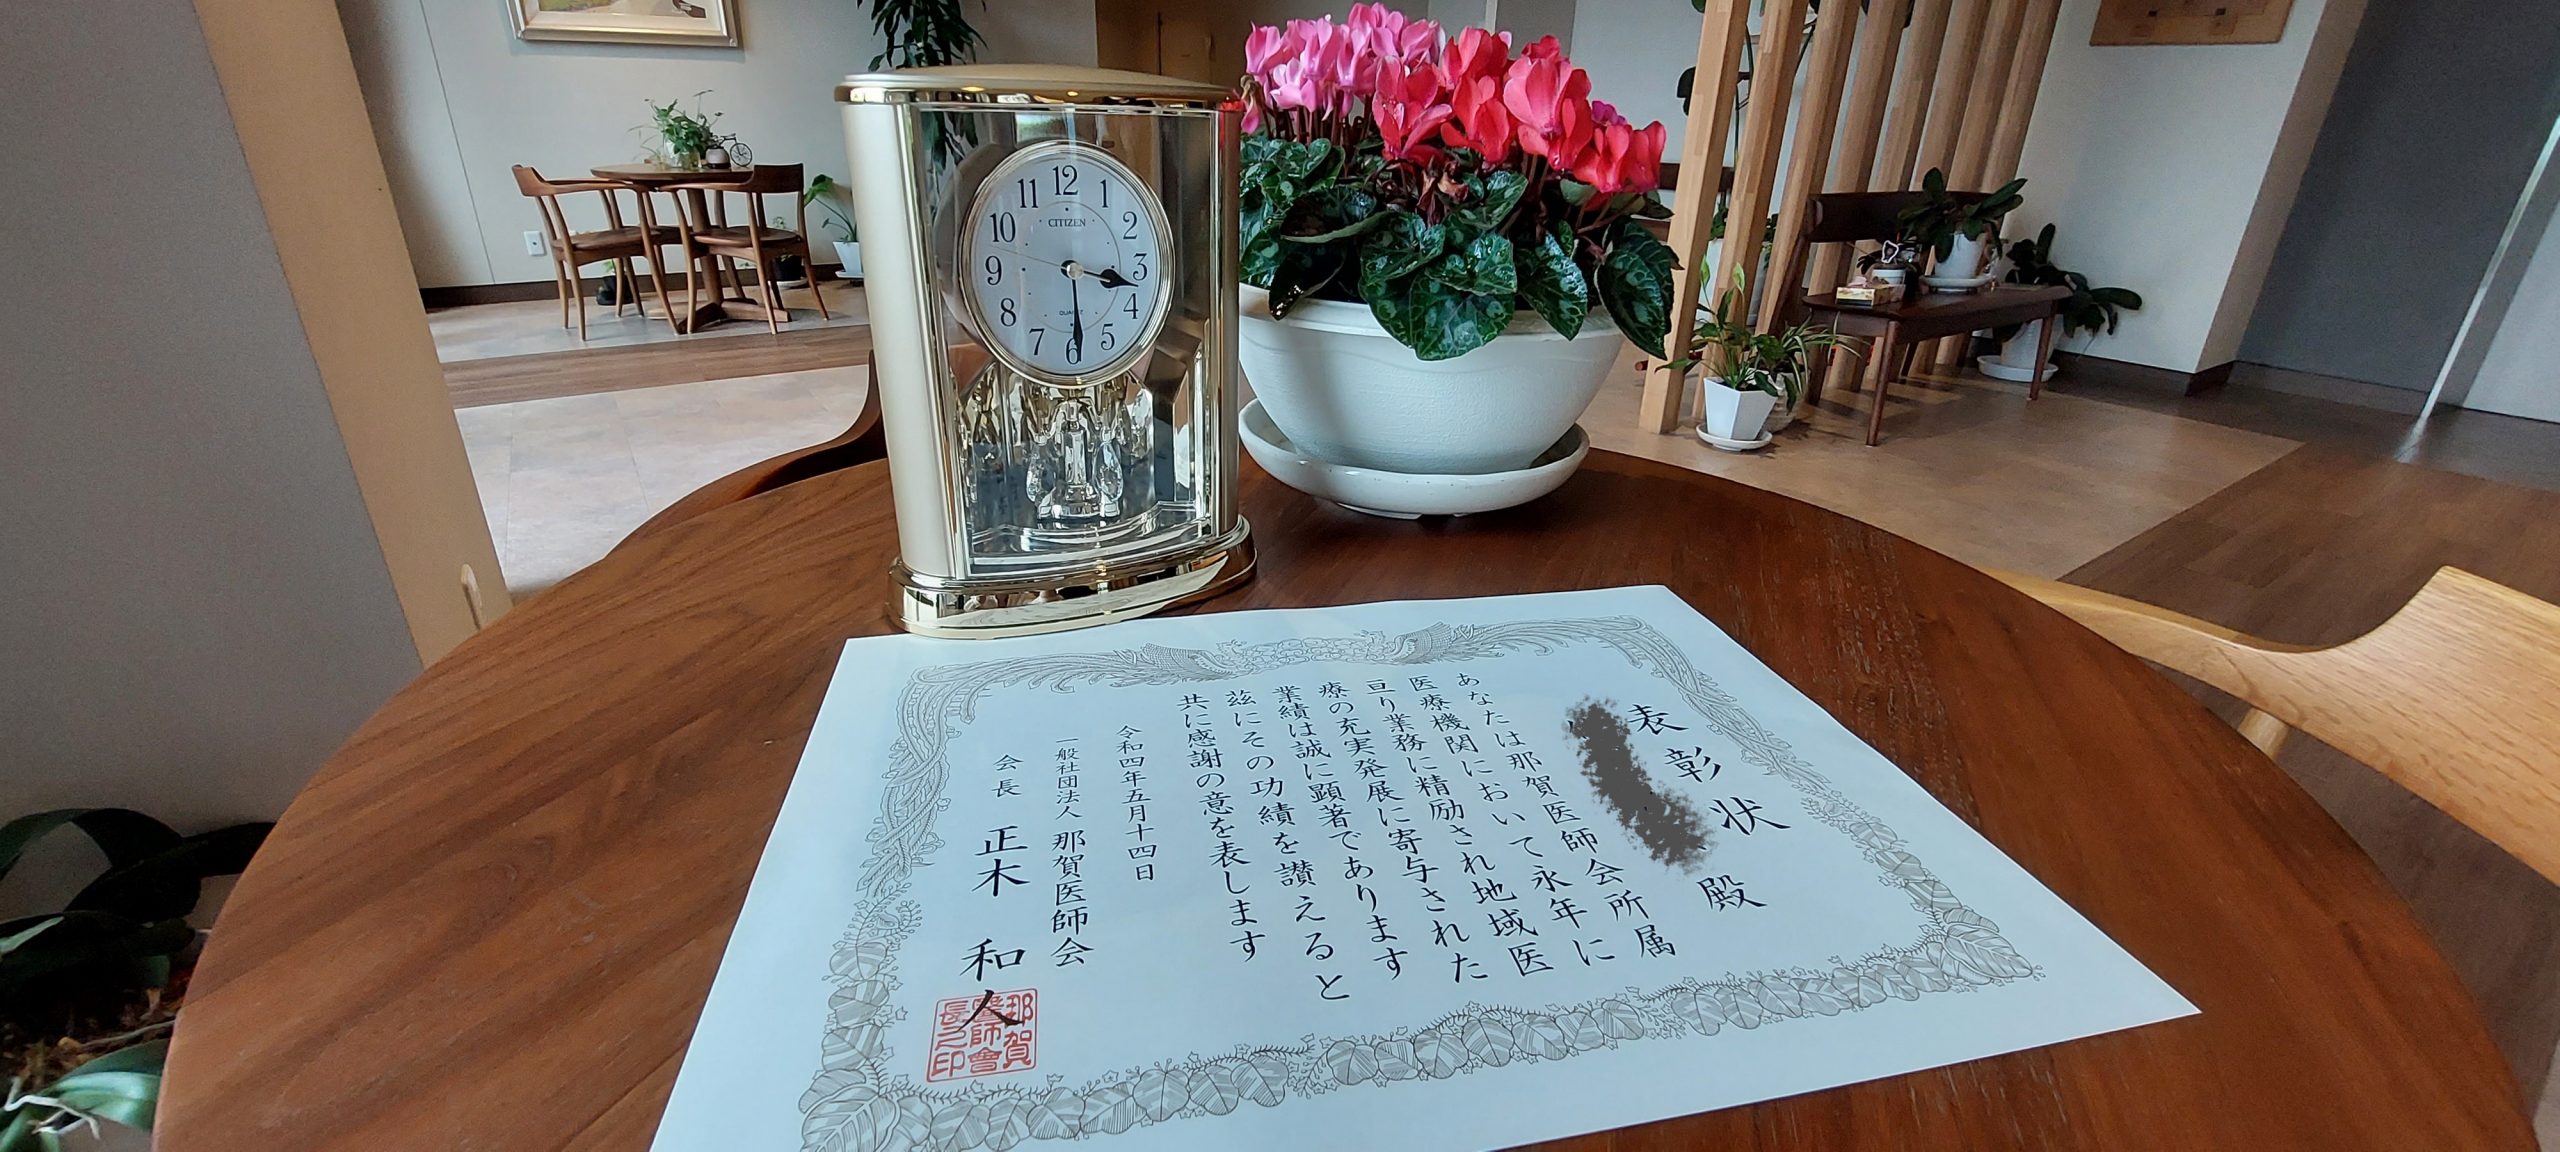 12
1
2
3
4
5
6
7
8
9
10
11
CITIZEN
QUARTZ
表彰状
殿
あなたは那賀医師会所属
医療機関において永年に
亘り業務に精励され地域医
療の充実発展に寄与された
業績は誠に顕著であります
茲にその功績を讃えると
共に感謝の意を表します
令和四年五月十四日
一般社団法人 那賀医師会
会長 正木 和人
那賀
醫師會
長之印